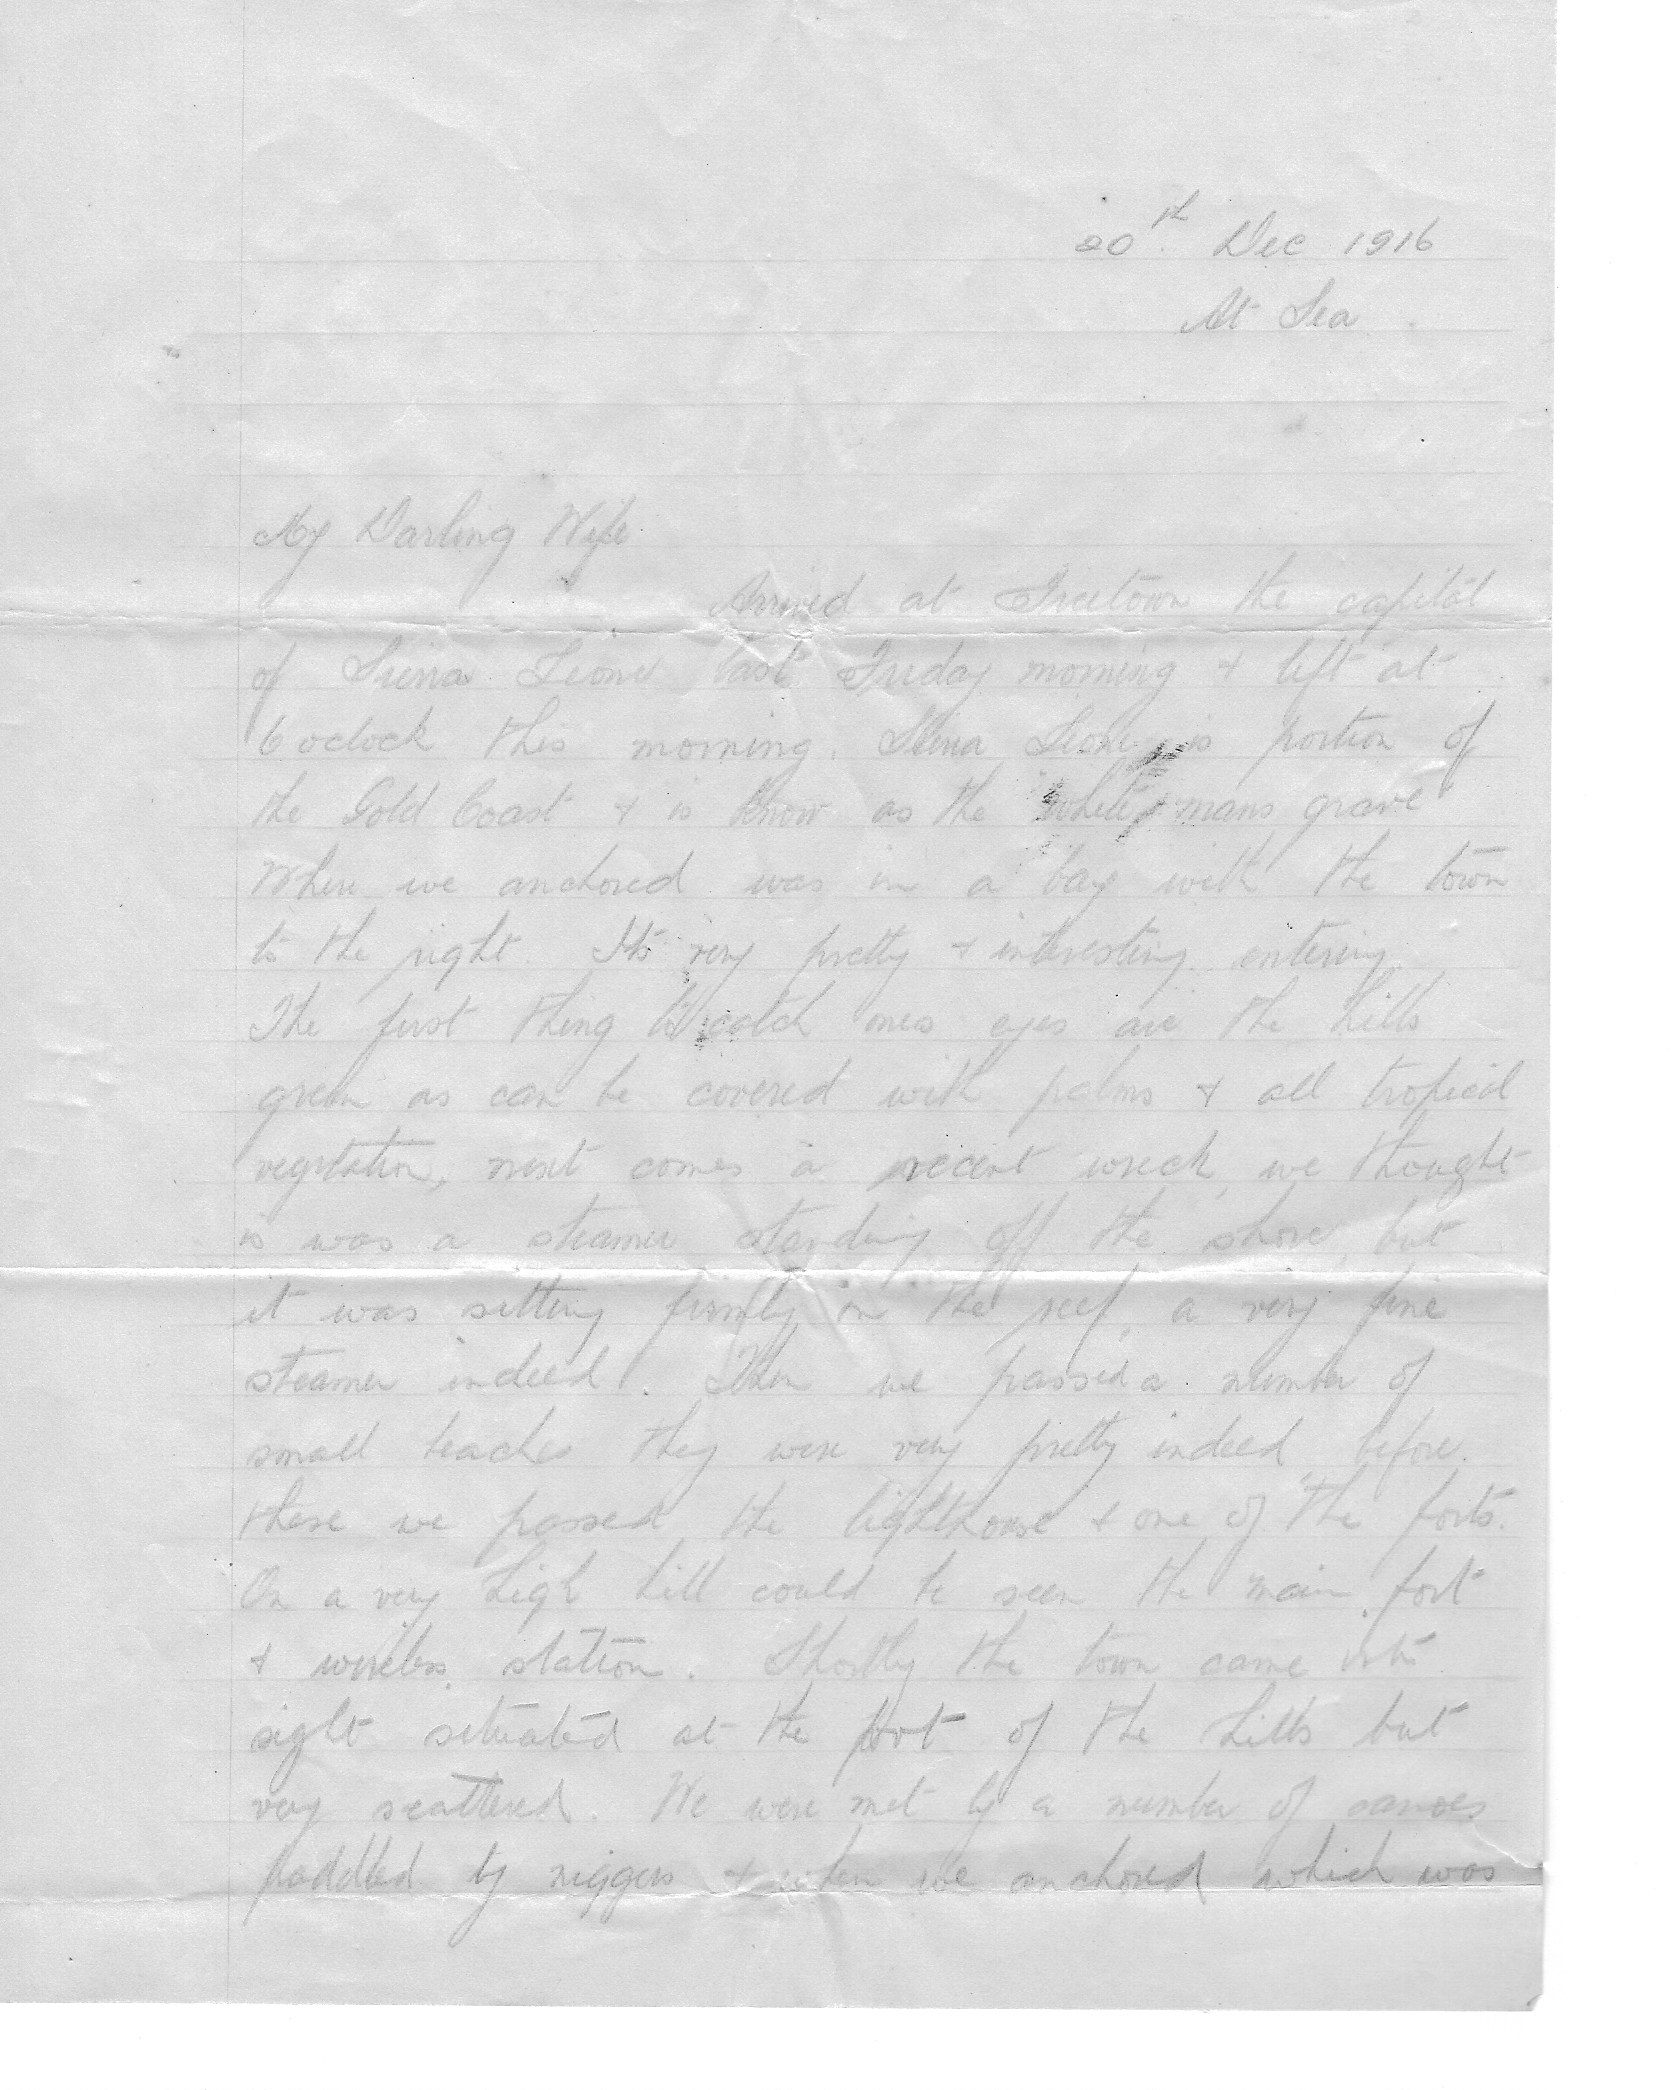 20th Dec 1916
At Sea
My Darling Wife
Arrived at Freetown the capital
of Sierra Leone last Friday morning & left at
6 oclock this morning. Sierra Leone is portion of
the Gold Coast & is know as the "white mans grave"
Where we anchored was in a bay with the town
to the right. Its very pretty & interesting entering
The first thing to catch ones eyes are the hills
green as can be covered with palms & all tropical
vegetation, next comes a recent wreck, we thought
is was a steamer standing off the shore, but
it was sitting firmly on the reef, a very fine
steamer indeed. Then we passed a number of
small beaches they were very pretty indeed before
these we passed the lighthouse & one of the forts.
On a very high hill could be seen the main fort
& wireless station. Shortly the town came into
sight situated at the foot of the hills but
very scattered. We were met by a number of canoes
paddled by niggers & when we anchored which was